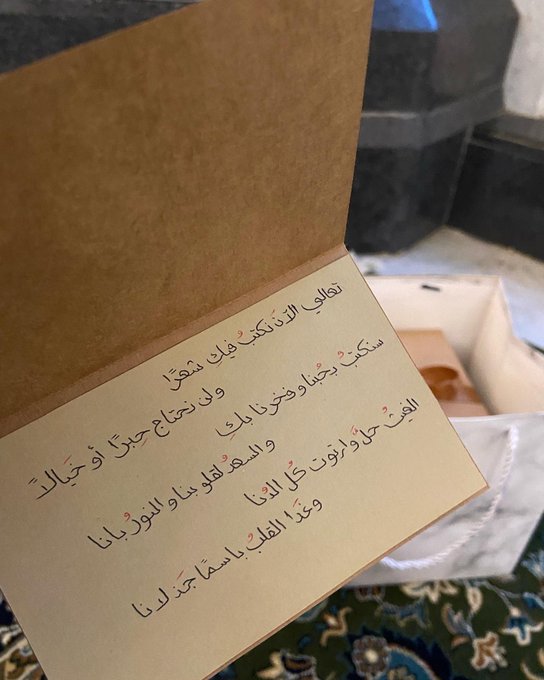 تعالي الآنَ نكتبُ فيكِ شعرًا
ولن نحتاج حِبرًا أو خَيالاً
سنكتبُ بحُبنا وفخرنا بكِ
والسعدُ لقلوبنا والنورُ بانا
الغيثُ حلَّ وارتوت كُل الدُنا
وغدَا القلبُ باسمًا جَذلانا